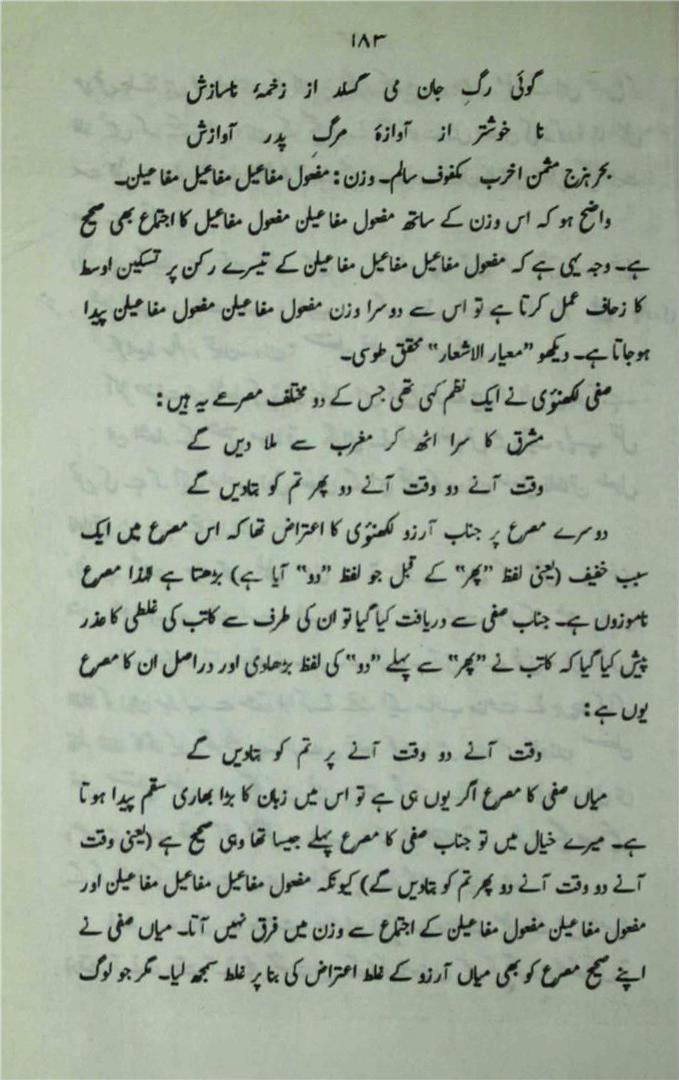 ۱۸۳
گوئی رگِ جان می گسلد از زخمۂ ناسازش
نا خوشتر از آوازۂ مرگِ پدر آوازش
بحر ہزج مثمن اخرب مکفوف سالم۔ وزن : مفعول مفاعیل مفاعیل مفاعیلن۔
واضح ہو کہ اس وزن کے ساتھ مفعول مفاعیلن مفعول مفاعیل کا اجتماع بھی صحیح
ہے۔ وجہ یہی ہے کہ مفعول مفاعیل مفاعیل مفاعیلن کے تیسرے رکن پر تسکین اوسط
کا زحاف عمل کرتا ہے تو اس سے دوسرا وزن مفعول مفاعیلن مفعول مفاعیلن پیدا
ہوجاتا ہے۔ دیکھو "معیار الاشعار" محقق طوسی۔
صفی لکھنؤی نے ایک نظم کہی تھی جس کے دو مختلف مصرعے یہ ہیں :
مشرق کا سرا اٹھ کر مغرب سے ملا دیں گے
وقت آنے دو وقت آنے دو پھر تم کو بتادیں گے
دوسرے مصرع پر جناب آرزو لکھنؤی کا اعتراض تھا کہ اس مصرع میں ایک
سبب خفیف (یعنی لفظ "پھر" کے قبل جو لفظ "دو" آیا ہے) بڑھتا ہے لہٰذا مصرع
ناموزوں ہے۔ جناب صفی سے دریافت کیا گیا تو ان کی طرف سے کاتب کی غلطی کا عذر
پیش کیا گیا کہ کاتب نے "پھر" سے پہلے "دو" کی لفظ بڑھادی اور دراصل ان کا مصرع
یوں ہے :
وقت آنے دو وقت آنے پر تم کو بتادیں گے
میاں صفی کا مصرع اگر یوں ہی ہے تو اس میں زبان کا بڑا بھاری سقم پیدا ہوتا
ہے۔ میرے خیال میں تو جناب صفی کا مصرع پہلے جیسا تھا وہی صحیح ہے (یعنی وقت
آنے دو وقت آنے دو پھر تم کو بتادیں گے) کیونکہ مفعول مفاعیل مفاعیل مفاعیلن اور
مفعول مفاعیلن مفعول مفاعیلن کے اجتماع سے وزن میں فرق نہیں آتا۔ میاں صفی نے
اپنے صحیح مصرع کو بھی میاں آرزو کے غلط اعتراض کی بنا پر غلط سمجھ لیا۔ مگر جو لوگ